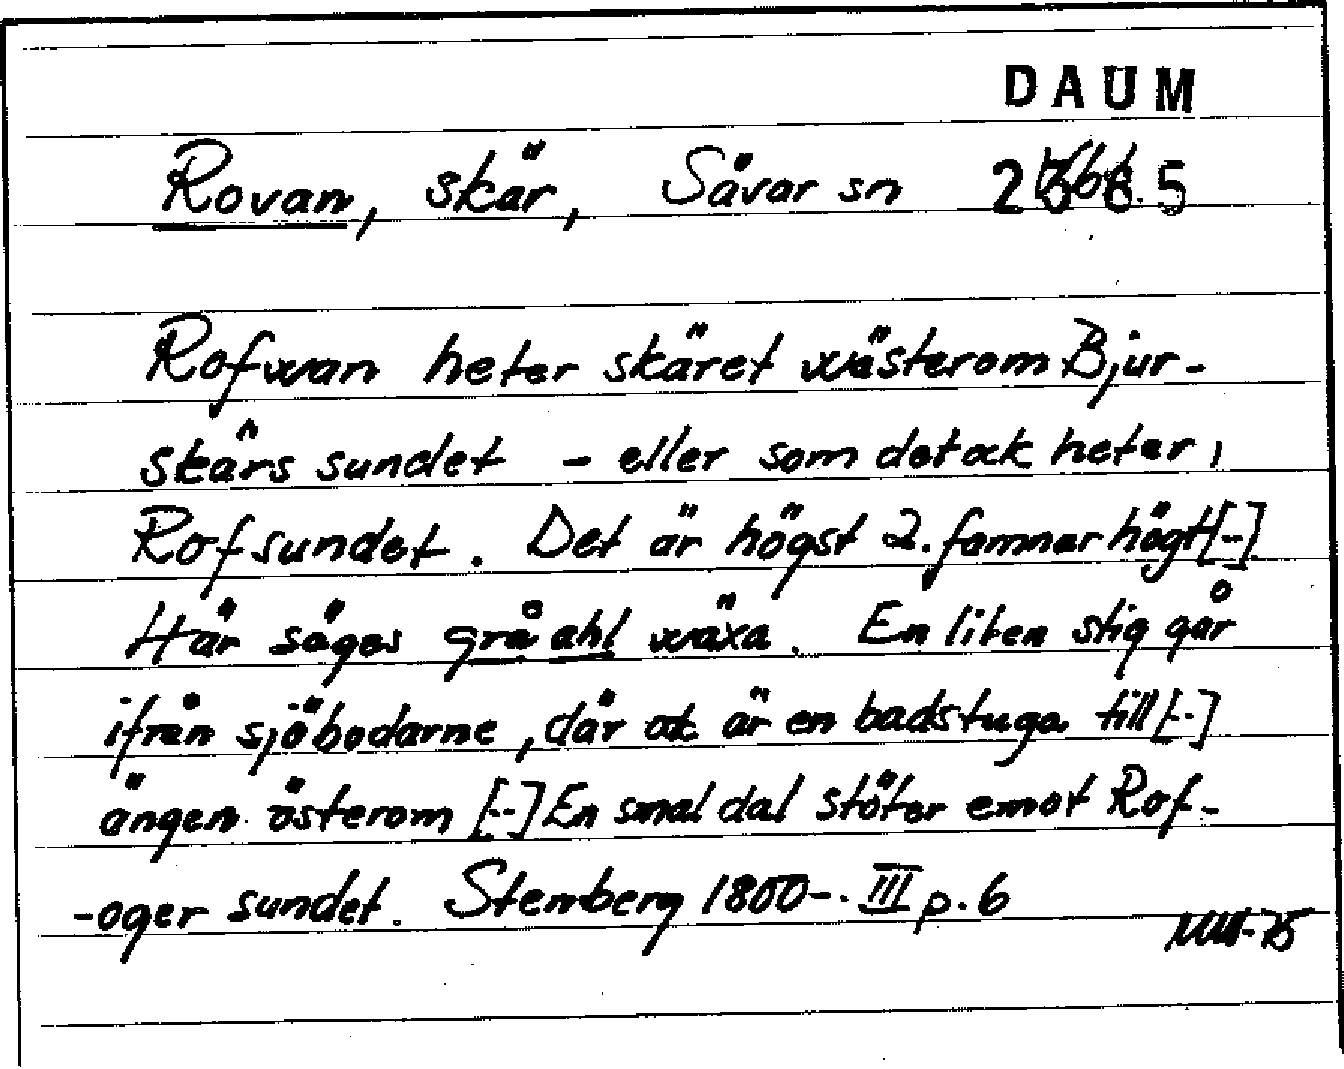 DAUM
Rovan, skär, Sävar sn
Rofwan heter skäret wästerom Bjur-
skärs sundet - eller som det ock heter,
Rofsundet. Det är högst 2. famnar högt [--]
Här säges grå ahl wäxa. En liten stig går
ifrån sjöbodarne, där ock är en badstuga till [--]
ängen österom [--] En smal dal stöter emot Rof-
-oger sundet. Stenberg 1800-. III p. 6